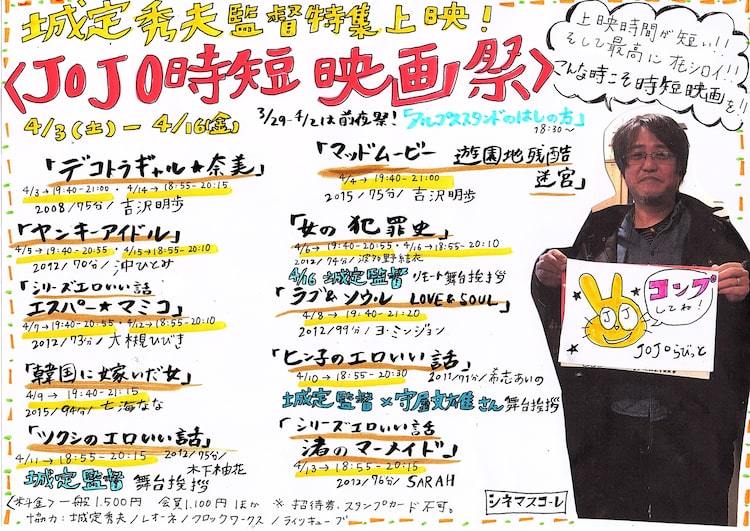 城定秀夫監督特集上映!
<JOJO時短映画祭>
4/3(土)ー4/16(金)
3/29-4/2は前夜祭!「アルプススタンドのはしの方」
18:30〜
上映時間が短い!!
そして最高にオモシロイ!!
こんな時こそ時短映画を!
「デコトラギャル★奈美」
4/3→19:40-21:00・4/14→18:55-20:15
2008/75分/吉沢明歩
「ヤンキーアイドル」
4/5→19:40-20:55・4/15→18:55-20:10
2012/70分/沖ひとみ
「シリーズエロいい話
エスパー★マミコ」
4/7→19:40-20:55・4/12→18:55-20:10
2012/73分/大槻ひびき
「韓国に嫁いだ女」
4/9→19:40-21:15
2015/94分/七海なな
「ツクシのエロいい話」
4/11→18:55-20:15
2012/75分/
木下柚花
城定監督 舞台挨拶
「マッドムービー 遊園地残酷
迷宮」
4/4→19:40-21:00
2015/75分/吉沢明歩
「女の犯罪史」
4/6→19:40-20:55・4/16→18:55-20:10
2012/74分/波多野結衣
4/16 城定監督 リモート舞台挨拶
「ラブ&ソウル LOVE&SOUL」
4/8→19:40-21:20
2012/99分/ヨ・ミンジョン
「ヒン子のエロいい話」
4/10→18:55-20:30
2011/71分/希志あいの
城定監督×守屋文雄さん 舞台挨拶
「シリーズエロいい話
渚のマーメイド」
4/13→18:55-20:15
2012/76分/SARAH
コンプ
してね!
JJ
JOJOらびっと
<料金>一般1.500円 会員1.100円ほか ※招待券.スタンプカード不可。
協力:城定秀夫/レオーネ/クロックワークス/ライツキューブ
シネマスコーレ